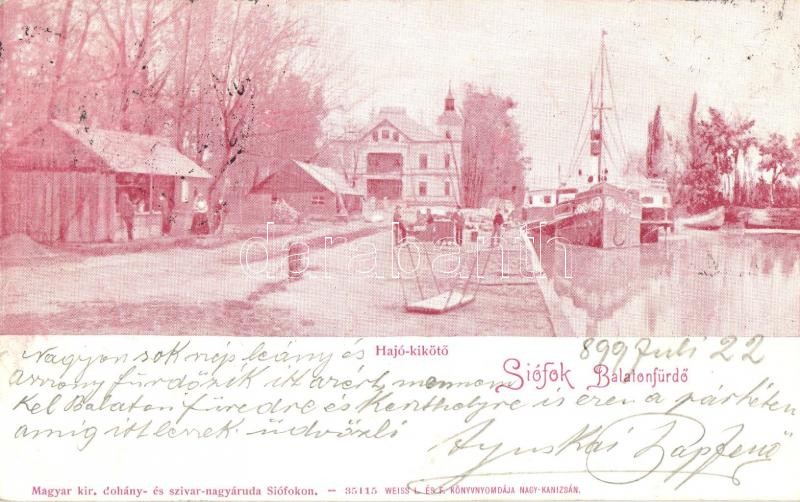 Hajó-kikötő
Siófok Balatonfürdő
899 Juli 22
Nagyon sok nép leány és
asszony fürdőzik itt azért mennem
kel Balaton füredre és Keszthelyre is ezen a
amig itt leszek. üdvözlő
Magyar kir. dohány- és szivar-nagyáruda Siófokon. — 35115 WEISS L. ÉS F. KÖNYVNYOMDÁJA NAGY-KANIZSÁN.
darabanth